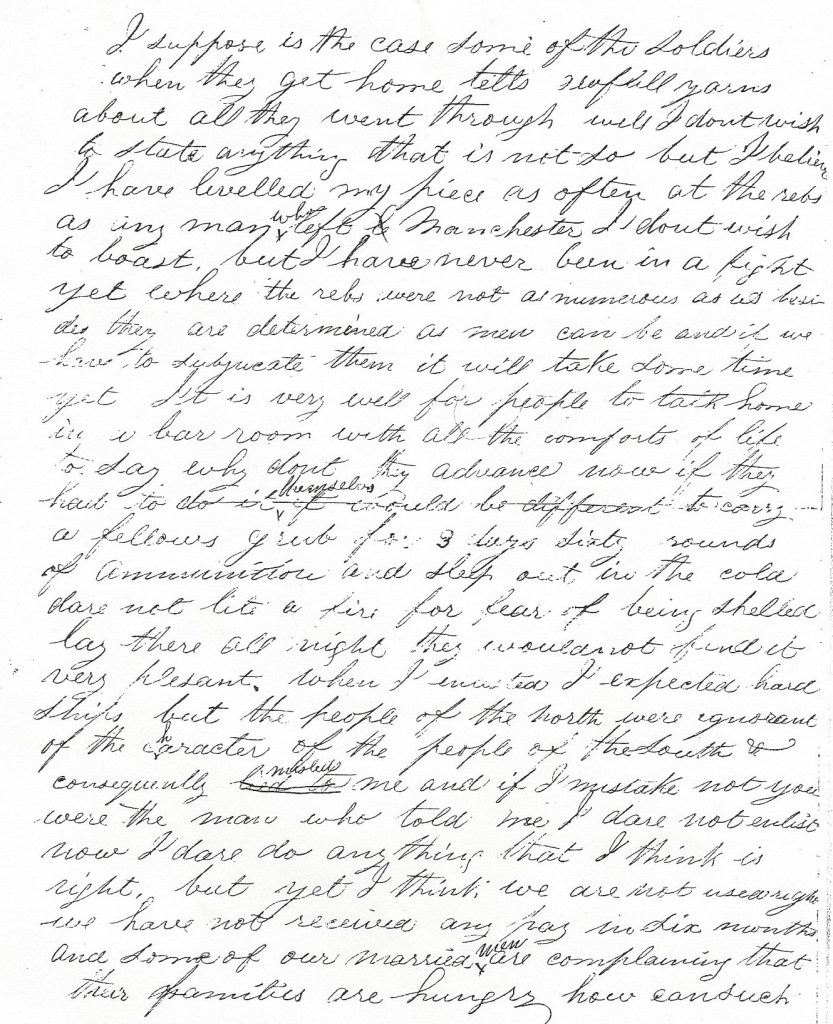 I suppose is the case some of the Soldiers
when they get home tells yarns
about all they went through well I dont wish
to state anything that is not so but I believe
I have levelled my piece as often at the rebs
as any man who left Manchester I dont wish
to boast, but I have never been in a fight
yet where the rebs were not as numerous as us besi
des they are determined as men can be and if we
have to subjucate them it will take some time
yet It is very well for people to talk home
in a bar room with all the comforts of life
to say why dont they advance now if they
had to do it themselves it would be different to carry
a fellows grub for 3 days sixty rounds
of ammunition and sleep out in the cold
dare not lite a fire for fear of being shelled
lay there all night they would not find it
very plesant. when I enlisted I expected hard
ships but the people of the north were ignorant
of the caracter of the people of the South &
consequently led to mislead me and if I mistake not you
were the man who told me I dare not enlist
now I dare do anything that I think is
right, but yet I think we are not used right
we have not received any pay in six months
and some of our married men are complaining that
their families are hungry how can such